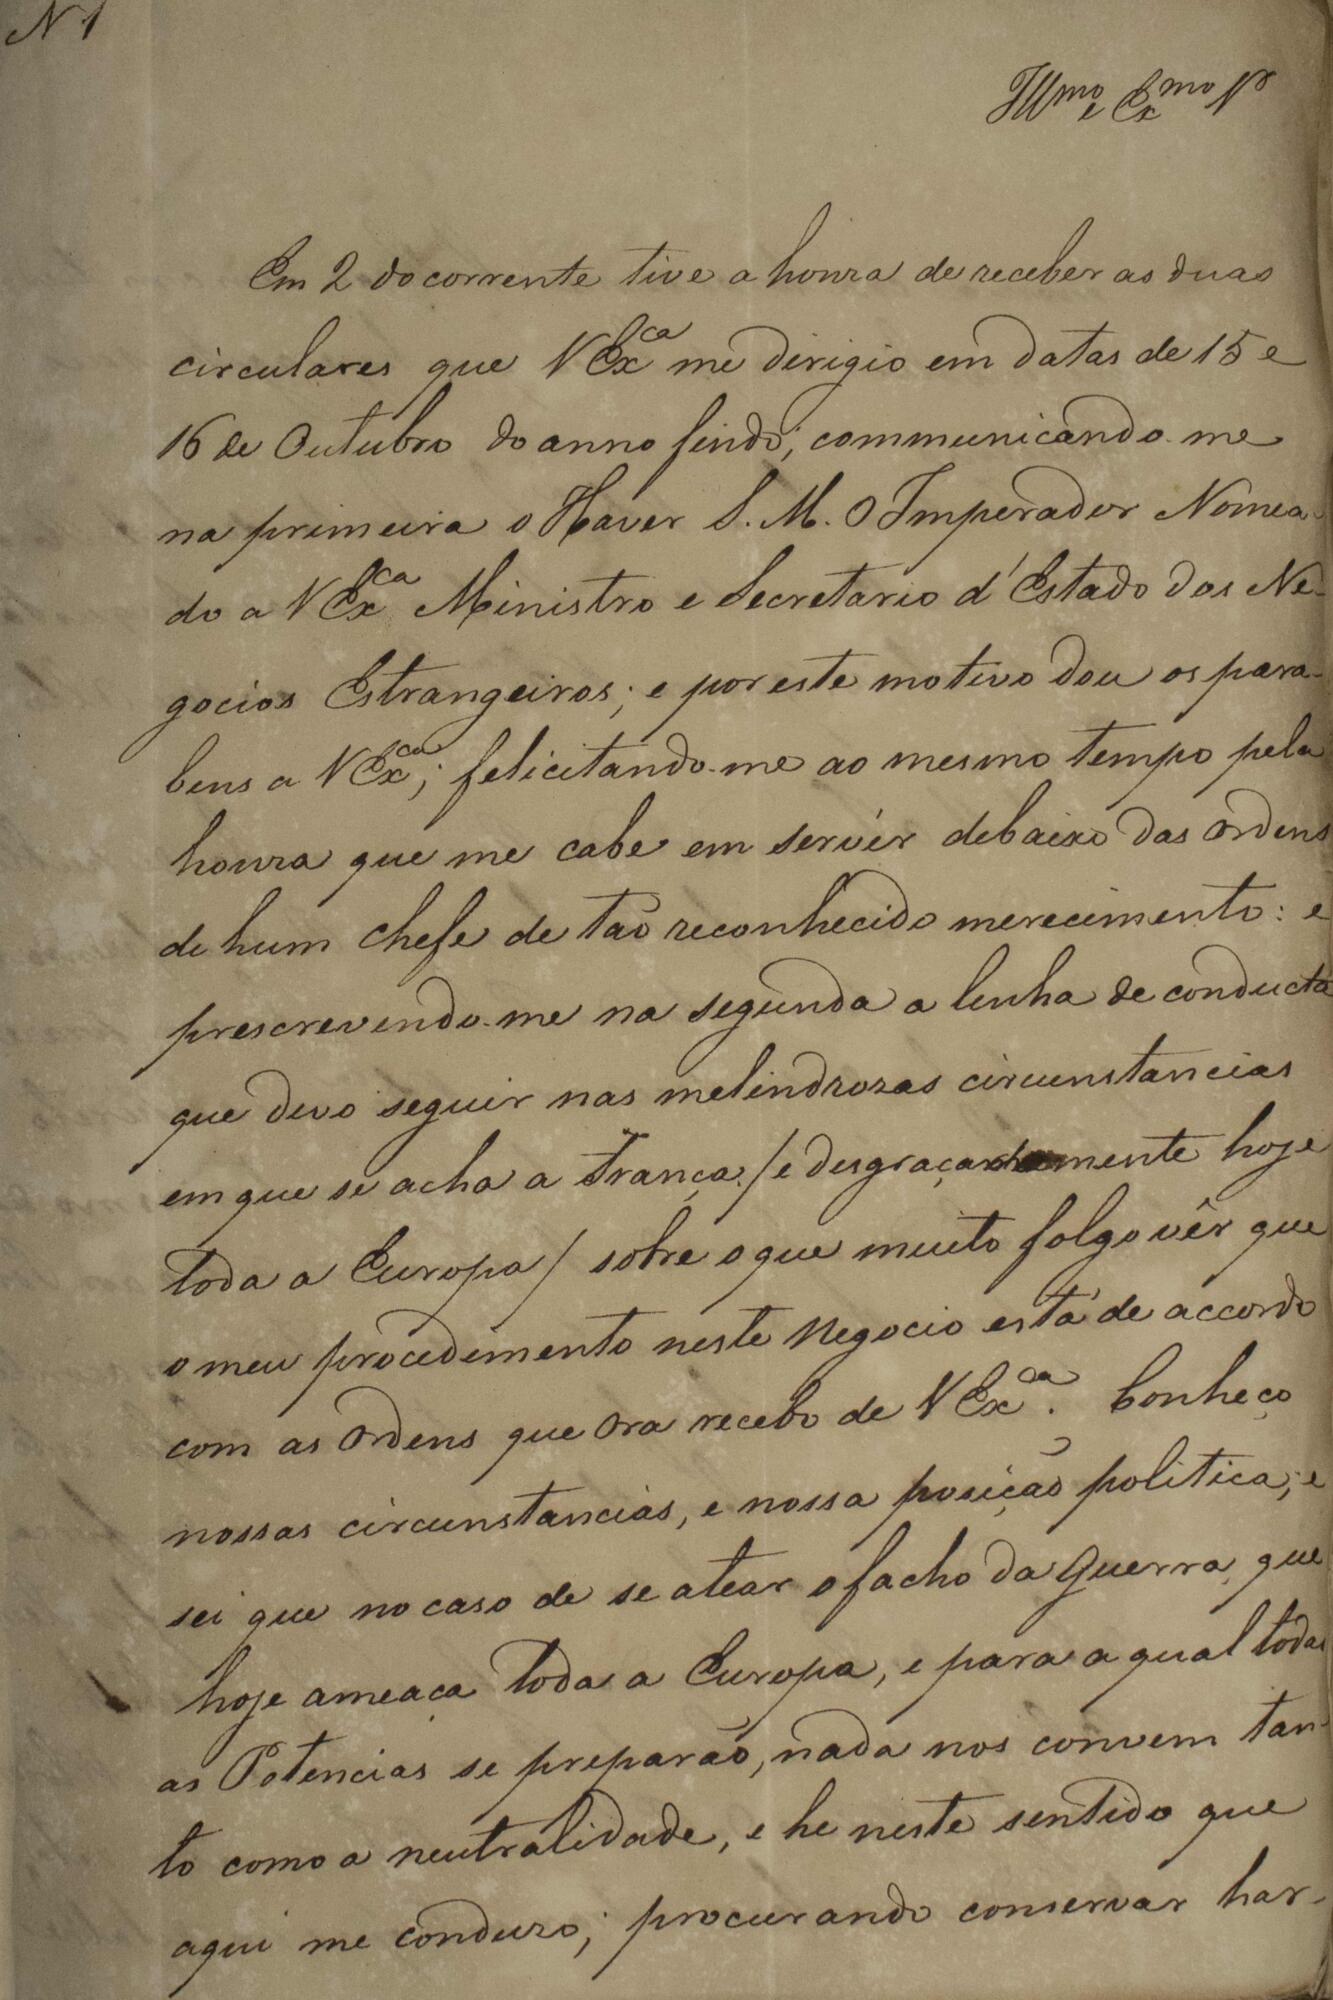 N 1
Illmo e Exmo Sr
Em 2 do corrente tive a honra de receber as duas
circulares que VExca me dirigio em datas de 15 e
16 de Outubro do anno findo; communicando-me
na primeira o Haver S. M. O Imperador Nomea-
do a VExca Ministro e Secretario d'Estado dos Ne-
gocios Estrangeiros; e por este motivo dou os para-
bens a VExca; felicitando-me ao mesmo tempo pela
honra que me cabe em servir debaixo das ordens
de hum Chefe de tão reconhecido merecimento: e
prescrevendo-me na segunda a linha de conducta
que devo seguir nas melindrozas circunstancias
em que se acha a França /e desgraçadamente hoje
toda a Europa/ sobre o que muito folgo vêr que
o meu procedimento neste negocio está de accordo
com as ordens que ora recebo de VExca. Conheço
nossas circunstancias, e nossa posição politica; e
sei que no caso de se atear o facho da Guerra, que
hoje ameaça toda a Europa, e para a qual todas
as Potencias se preparão, nada nos convem tan-
to como a neutralidade, e he neste sentido que
aqui me conduzo; procurando conservar har-